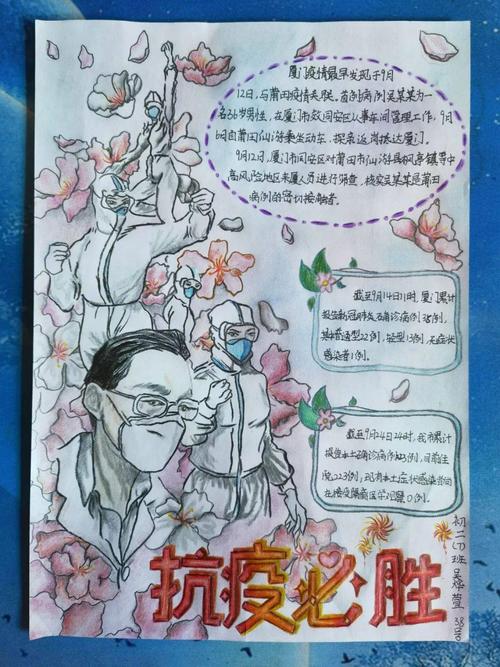 厦门疫情最早发现于9月
12日，与莆田疫情关联。首例病例吴某某为一
名36岁男性，在厦门市致同安区从事车间管理工作，9月
6日自莆田仙游乘坐动车，探亲返岗抵达厦门。
9月12日，厦门市同安区对莆田市仙游县枫亭镇等中
高风险地区来厦人员进行筛查，核实吴某某是莆田
病例的密切接触者。
截至9月14日11时，厦门累计
报告新冠肺炎确诊病例35例，
其中普通型22例，轻型13例，无症状
感染者1例。
截至9月24日24时，我市累计
报告本土确诊病例225例，目前住
院223例；现有本土症状感染者尚
在接受隔离医学观察0例。
抗疫必胜
初二(7)班
38号